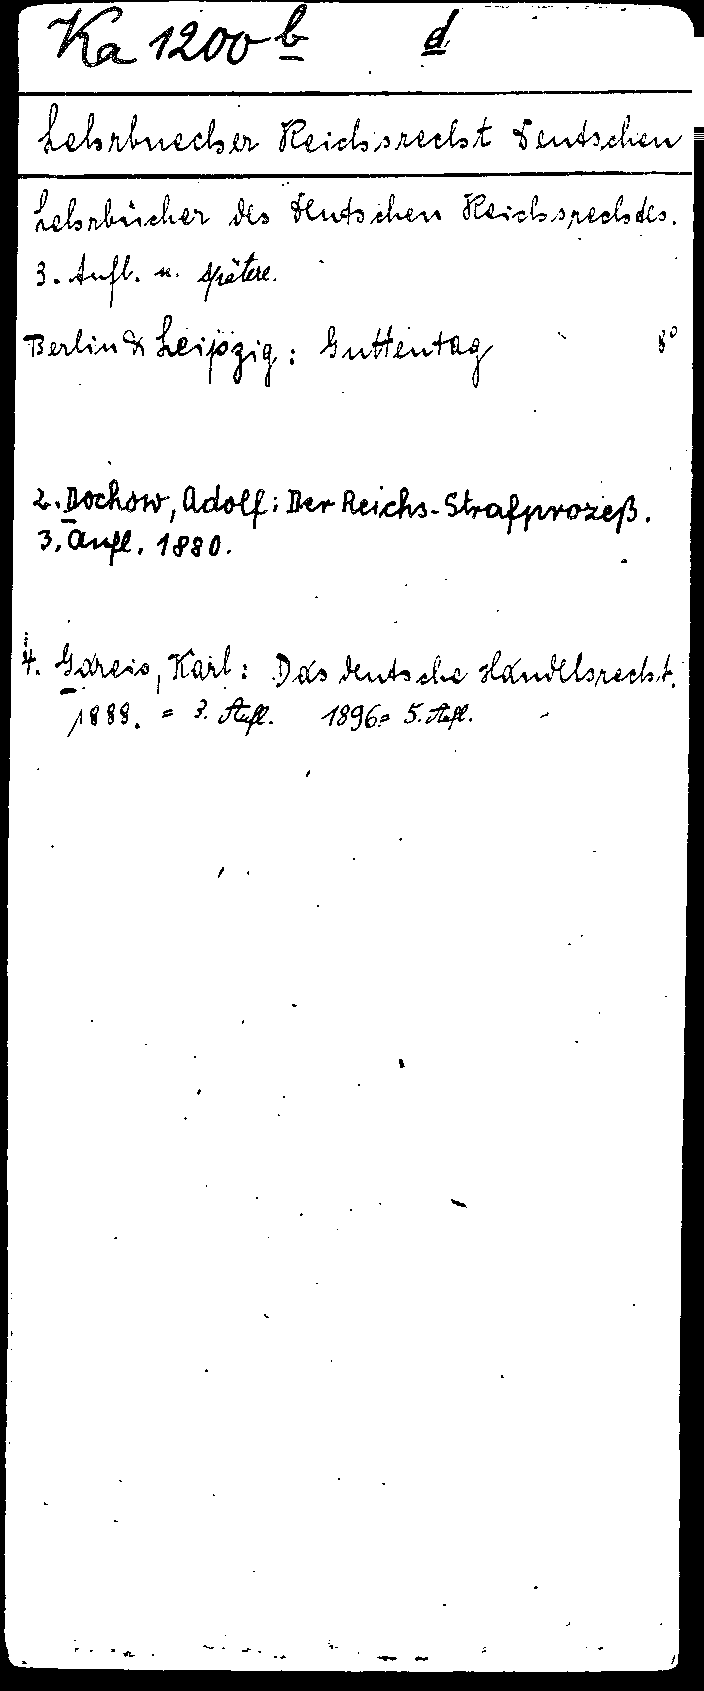 Ka 1200 b d
Lehrbuecher Reichsrecht Deutschen
Lehrbücher des Deutschen Reichsrechtes.
3. Aufl. u. spätere.
Berlin & Leipzig: Guttentag 8°
2. Dochow, Adolf: Der Reichs-Strafprozeß.
3. Aufl. 1880.
4. Gareis, Karl: Das deutsche Handelsrecht.
1888. = 3. Aufl. 1896 = 5. Aufl.